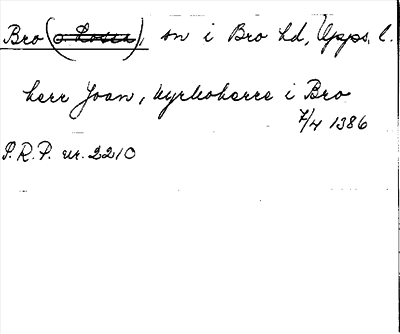 Bro (), sn i Bro hd, Upps. l.
herr Joan, kyrkoherre i Bro
7/4 1386
S.R.P. nr. 2210